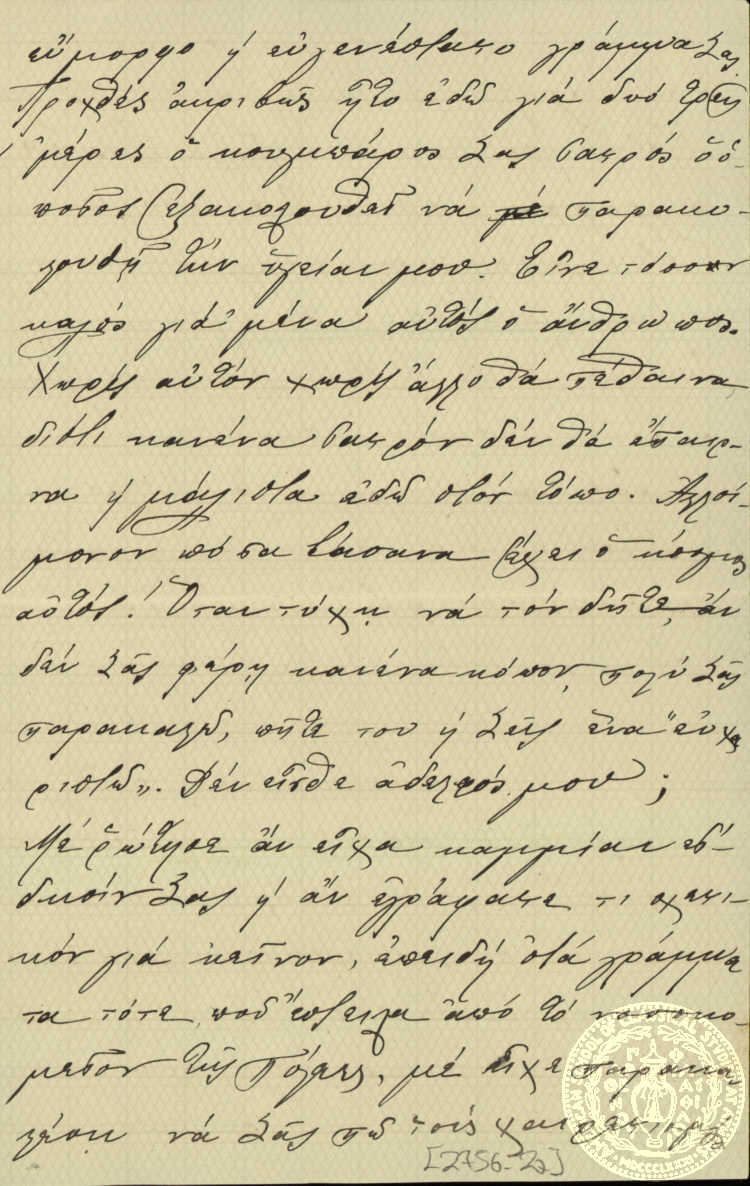 εὔμορφο ἡ εὐγενέστατο γράμμα Σας.
Προχθές ἀκριβῶς ἦτο ἐδῶ γιά δυό τρεῖς
μέρες ὁ κουμπάρος Σας ἰατρός ὁ ὁ-
ποῖος ἐξακολουθεῖ νά μέ παρακο-
λουθῇ τήν ὑγείαν μου. Εἶνε τόσον
καλός γιά μένα αὐτός ὁ ἄνθρωπος.
Χωρίς αὐτόν χωρίς ἄλλο θά πέθαινα
διότι κανένα ἰατρόν δέν θά ἔπαιρ-
να ἡ μάλιστα ἐδῶ στόν τόπο. Ἀλλοί-
μονον πόσα βάσανα ἔχει ὁ κόσμος
αὐτός! Ὅταν τύχῃ νά τόν δῆτε, ἄν
δέν Σᾶς φέρῃ κανένα κόπον, πολύ Σᾶς
παρακαλῶ, πῆτε του ἡ Σεῖς ἕνα "εὐχα
ριστῶ". Δέν εἶσθε ἀδελφός μου;
Μέ ἐρώτησε ἄν εἶχα καμμίαν εἴ-
δησίν Σας ἡ ἄν ἐγράφατε τι σχετι-
κόν γιά κεῖνον, ἐπειδή στά γράμμα
τα τότε ποῦ ἔστειλα ἀπό τό νοσοκο-
μεῖον τῆς Πόλεως, μέ εἶχε παρακα
λέσῃ νά Σᾶς πῶ τούς χαιρετισμούς
[2756-22]
MDCCCLXXXI